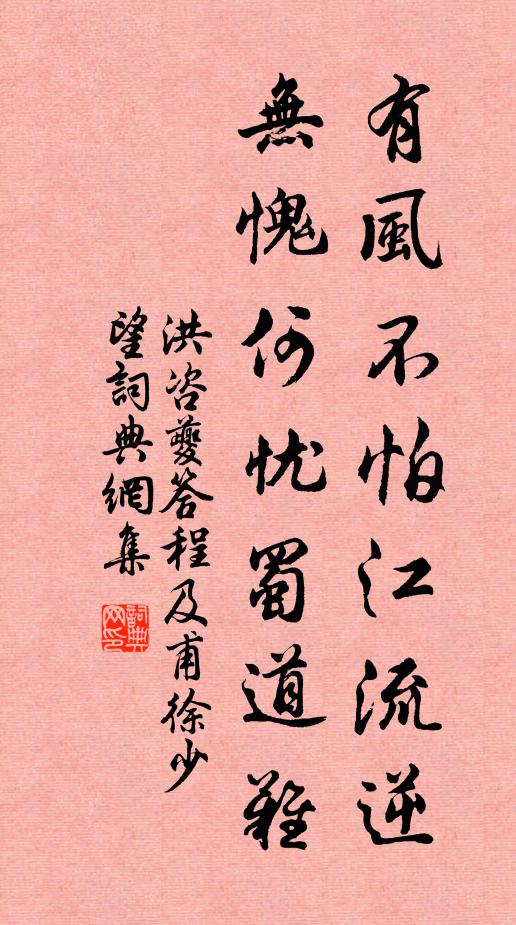 有風不怕江流逆
無愧何忧蜀道難
洪咨夔答程及甫徐少
望詞典網集
詞典
网印